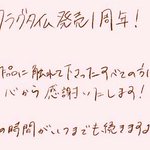 フラグタイム発売1周年!
作品に触れて下さったすべての方に
心から感謝いたします!
の時間がいつまでも続きますよ